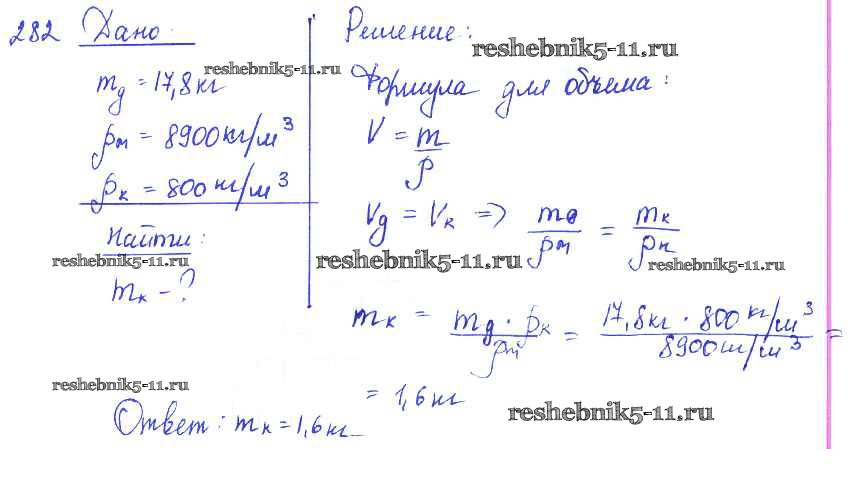 282 Дано:
m_д = 17,8 кг
ρ_м = 8900 кг/м³
ρ_к = 800 кг/м³
Найти:
m_к - ?
Решение:
reshebnik5-11.ru
reshebnik5-11.ru
Формула для объема:
V = m/ρ
V_д = V_к => m_д/ρ_м = m_к/ρ_к
reshebnik5-11.ru
reshebnik5-11.ru
reshebnik5-11.ru
m_к = m_д · ρ_к/ρ_м = 17,8 кг · 800 кг/м³/8900 кг/м³ =
= 1,6 кг
reshebnik5-11.ru
reshebnik5-11.ru
Ответ: m_к = 1,6 кг